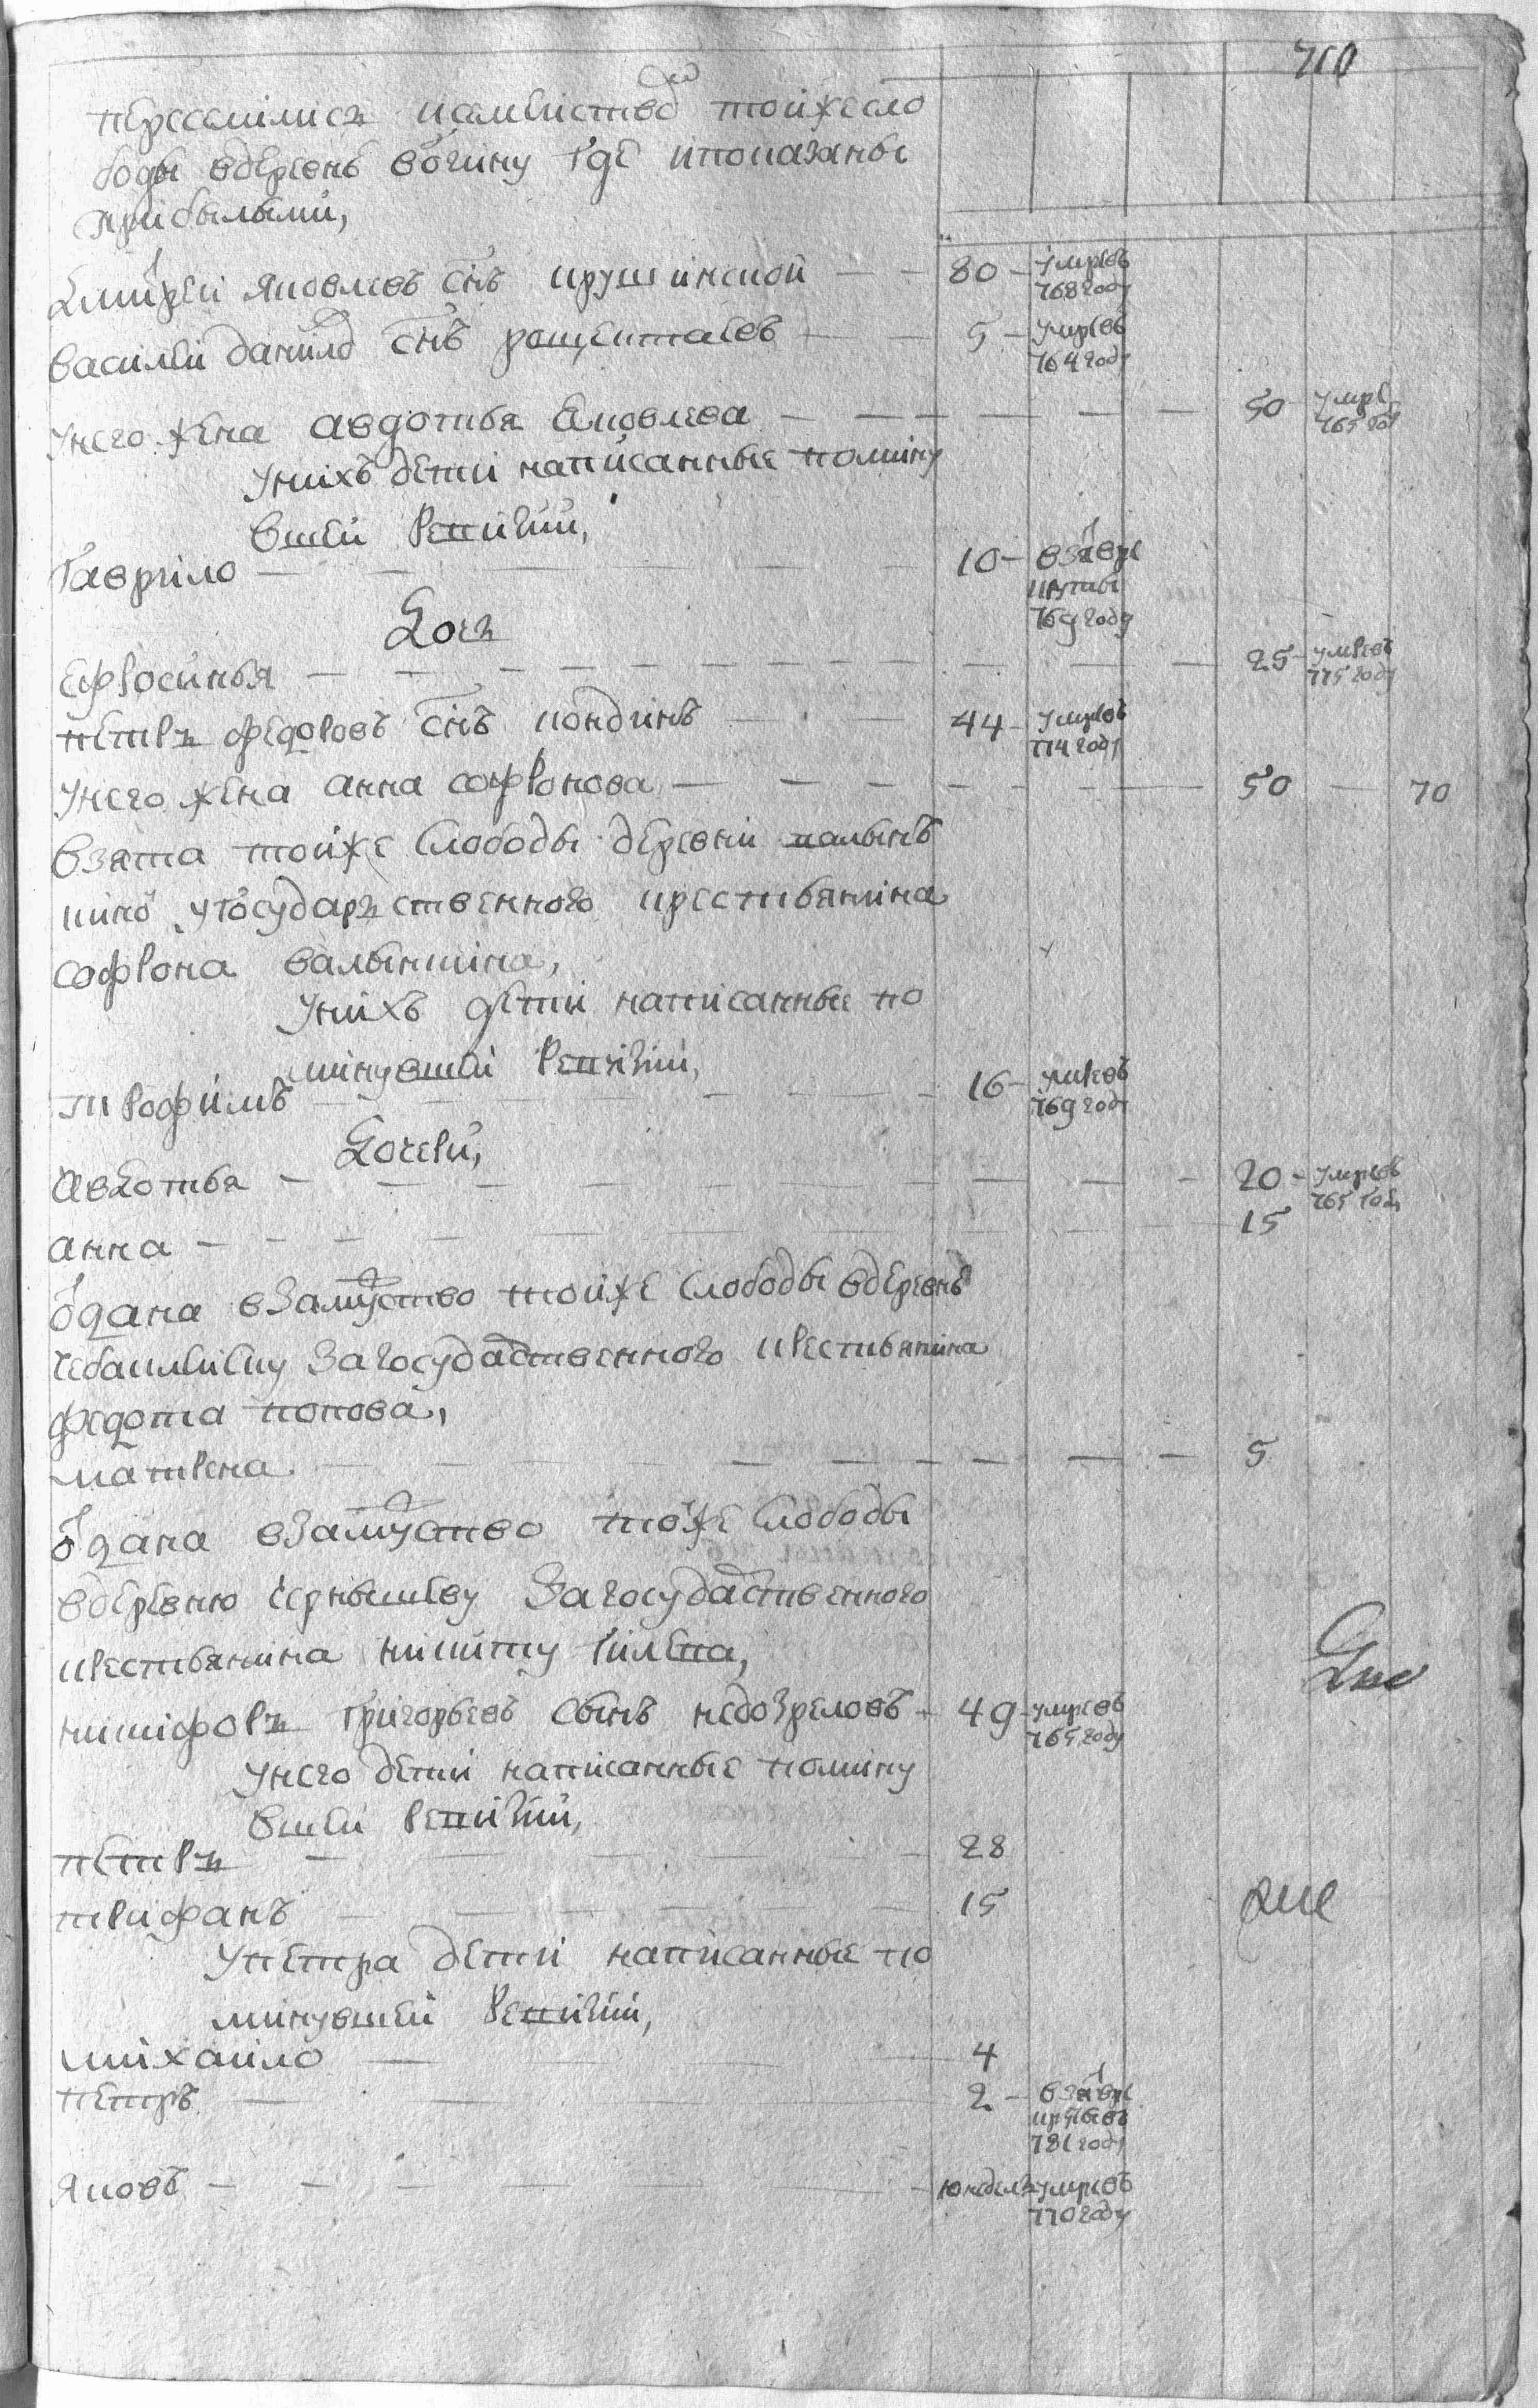 710
переселились исемейство тойжесло
боды вдеревнѣ вогину где ипоказаны
прибылыми,
Дмитрей яковлевъ снъ крушинской — 80 — умре въ 768 году
василей данило снъ рощектаевъ — 5 — умре въ 764 году
унего жена авдотья Яковлева — 50 — умре 765 год
унихъ дети написанные помину
вшей Ревизии,
Гаврило — 10 — взя врекруты 769 году
Дочь
ефросинья — 25 — умре въ 775 году
петръ федоровъ снъ кондинъ — 44 — умре въ 774 году
унего жена анна софронова — 50 — 70
взята тойже слободы деревни калын
кино угосударственного крестьянина
софрона валынкина,
унихъ дети написанные по
минувшей Ревизии,
трофимъ — 16 — умре въ 769 году
Дочери,
авдотья — 20 — умре въ 765 году
анна — 15
одана взамуство тойже слободы вдеревнѣ
загосударственного крестьянина
федота попова,
матрена — 5
одана взамуство тоже слободы
вдеревню чернышеву загосударственного
крестьянина никиту гилева,
никифоръ григорьевъ сынъ недозреловъ — 49 — умре въ 765 году
унего дети написанные помину
вшей Ревизии,
петръ — 28
трифанъ — 15
упетра дети написанные по
минувшей Ревизии,
михаило — 4
петръ — 2 — взя врекруты въ 781 году
яковъ — недель умре въ 770 году